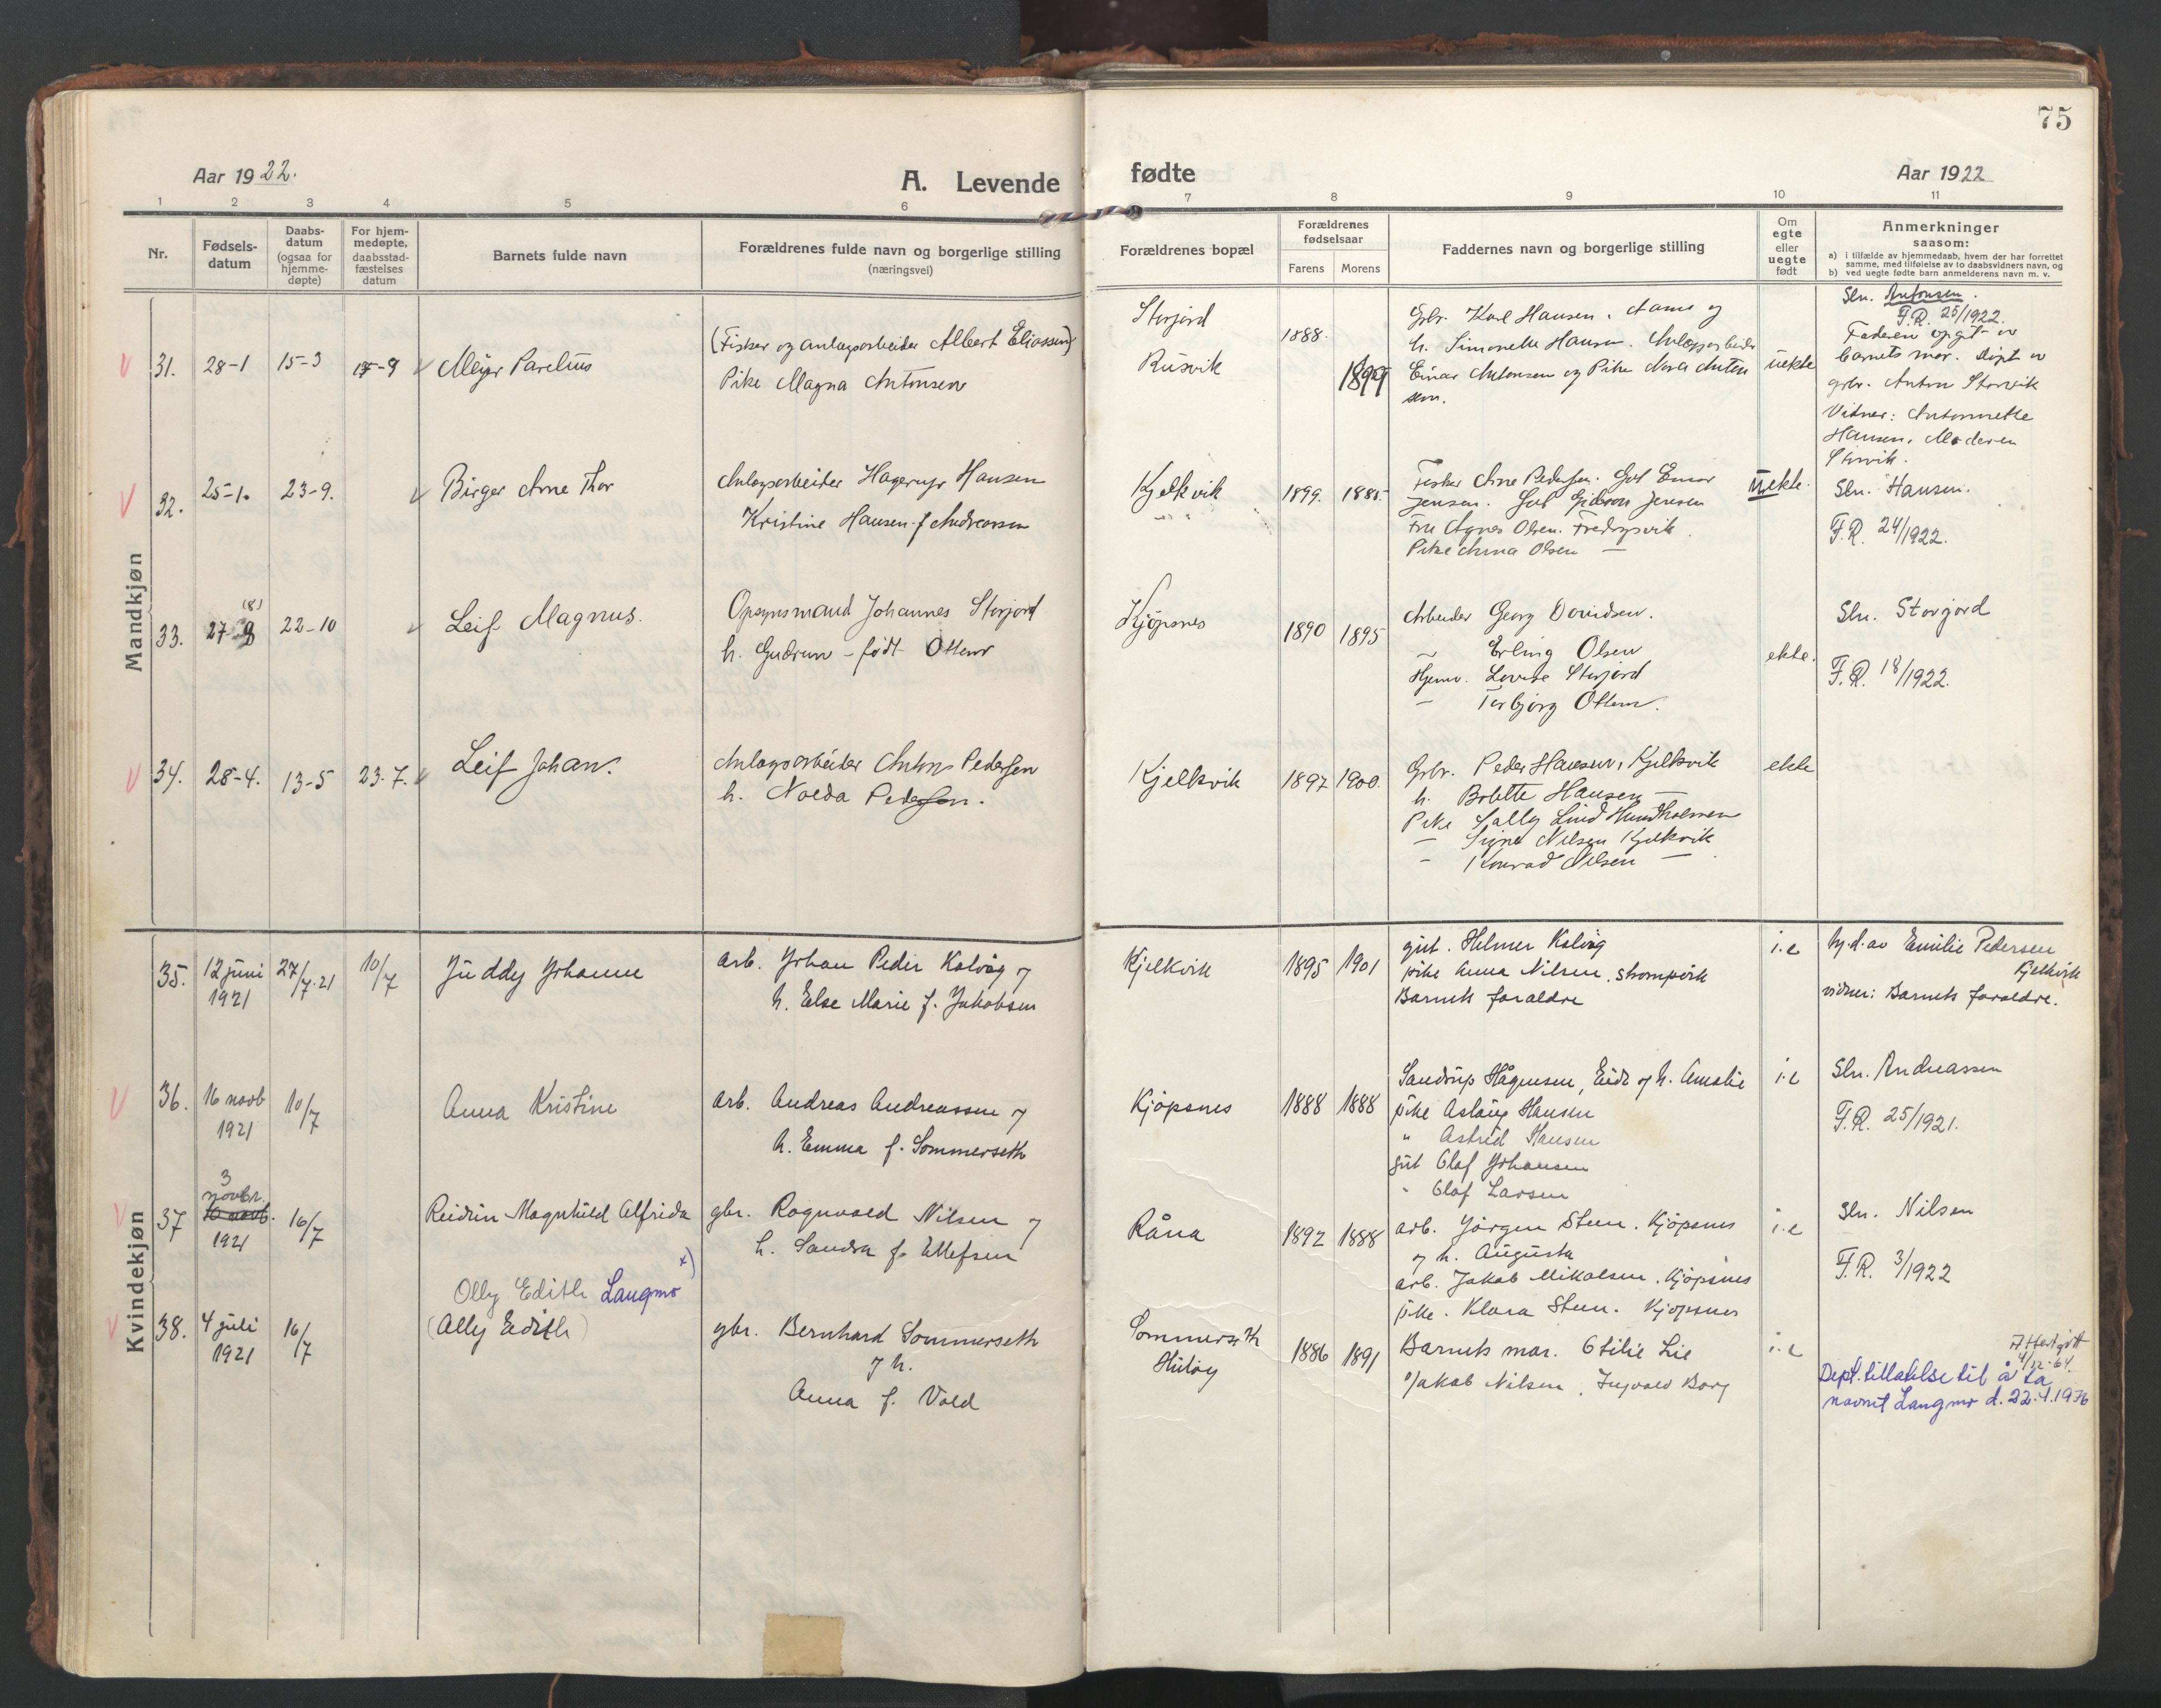 75
Aar 1922.
A. Levende
fødte
Aar 1922
1 2 3 4 5 6
7 8 9 10 11
Nr.
Fødsels-
datum
Daabs-
datum
(ogsaa for
hjemme-
døpte)
For hjem-
medøpte,
daabsstad-
fæstelses
datum
Barnets fulde navn
Forældrenes fulde navn og borgerlige stilling
(næringsvei)
Forældrenes bopæl
Forældrenes
fødselsaar
Farens Morens
Faddernes navn og borgerlige stilling
Om
egte
eller
uegte
født
Anmerkninger
saasom:
a) i tilfælde av hjemmedaab, hvem der har forrettet
samme, med tilføielse av to daabsvidners navn, og
b) ved uegte fødte barn anmelderens navn m. v.
Mandkjøn
31. 28-1 15-3 15-9 Meyer Parelius
(Fisker og anlægsarbeider Albert Eliassen)
Pike Magna Antonsen
Storjord
Rusvik
1888.
1899
Gbr. Karl Hansen, Hams og
h. Simonette Hansen. Anlægsarbeider
Einar Antonsen og Pike Nora Anton
sen.
uekte
Sln. Antonsen.
F.R. 25/1922.
Faderen opgit av
barnets mor. Døpt av
gbr. Anton Storvik
Vitner: Antonnette
Hansen, Moderen
Storvik.
32. 25-1. 23-9. Birger Arne Thor
Anlægsarbeider Hagerup Hansen
Kristine Hansen f Andreassen
Kjelkvik
1899. 1885.
Fisker Arne Pedersen. Gut Einar
Jensen. Gut Gideon Jensen
Fru Agnes Olsen. Fredagsvik.
Pike Anna Olsen —
uekte.
Sln. Hansen.
F.R. 24/1922.
33. 27-8 (8) 22-10 Leif Magnus.
Opsynsmand Johannes Storjord
h. Gudrun - født Ottem
Kjöpsnes
1890 1895
Arbeider Georg Davidsen.
— Erling Olsen
Hjemv. Lovise Storjord
— Torbjørg Ottem.
ekte.
Sln. Storjord
F.R. 18/1922.
34. 28-4. 13-5 23-7. Leif Johan.
Anlægsarbeider Anton Pedersen
h. Nolda Pedersen.
Kjelkvik
1897 1900.
Gbr. Peder Hansen, Kjelkvik
h. Bolette Hansen —
Pike Sally Lind Hundholmen
— Signe Nilsen Kjelkvik
— Konrad Nilsen —
ekte
Kvindekjøn
35. 12 juni
1921
27/7.21 10/7 Juddy Johanne
arb. Johan Peder Kalvåg og
h. Else Marie f. Jakobsen
Kjelkvik
1895 1901
gut. Helmer Kalvåg
pike Anna Nilsen, Strompvik
Barnets foraldre
i.e
hj.d. av Emilie Pedersen
Kjelkvik
vidner: Barnets foraldre.
36. 16 novb
1921
10/7 Anna Kristine
arb. Andreas Andreassen og
h. Emma f. Sommerseth
Kjöpsnes
1888 1888
Sandrup Hågensen, Eide og h. Amalie
pike Aslaug Hansen
" Astrid Hansen
gut Olaf Johansen
" Olaf Larsen
i.e
Sln. Andreassen
F.R. 25/1921.
37 3
novbr.
10 novb.
1921
16/7 Reidun Magnhild Alfrida
gbr. Rognvald Nilsen og
h. Sandra f. Ellefsen
Råna
1892 1888
arb. Jörgen Steen. Kjöpsnes
og h. Augusta
arb. Jakob Mikalsen. Kjöpsnes
pike. Klara Steen. Kjöpsnes
i.e
Sln. Nilsen
F.R. 3/1922
Olly Edith Langmo x)
38. 4 juli
1921
16/7 (Ally Edith)
gbr. Bernhard Sommerseth
og h.
Anna f. Vold
Sommerseth
Hulöy
1886 1891
Barnets mor. Otilie Lie
Jakob Nilsen, Ingvald Borg
i.e
4/12-64.
Dept. tillatelse til å ta
navnet Langmo d. 22.4.1936